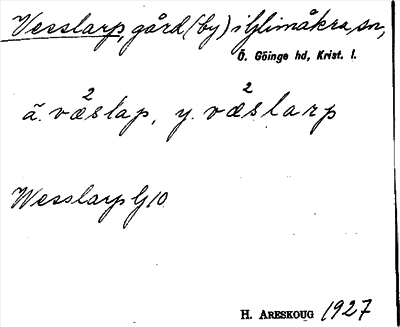 Vesslarp, gård (by) i Glimåkra sn,
Ö. Göinge hd, Krist. l.
ä. væ²slap, y. væ²slarp
Wesslarp G 10
H. ARESKOUG 1927